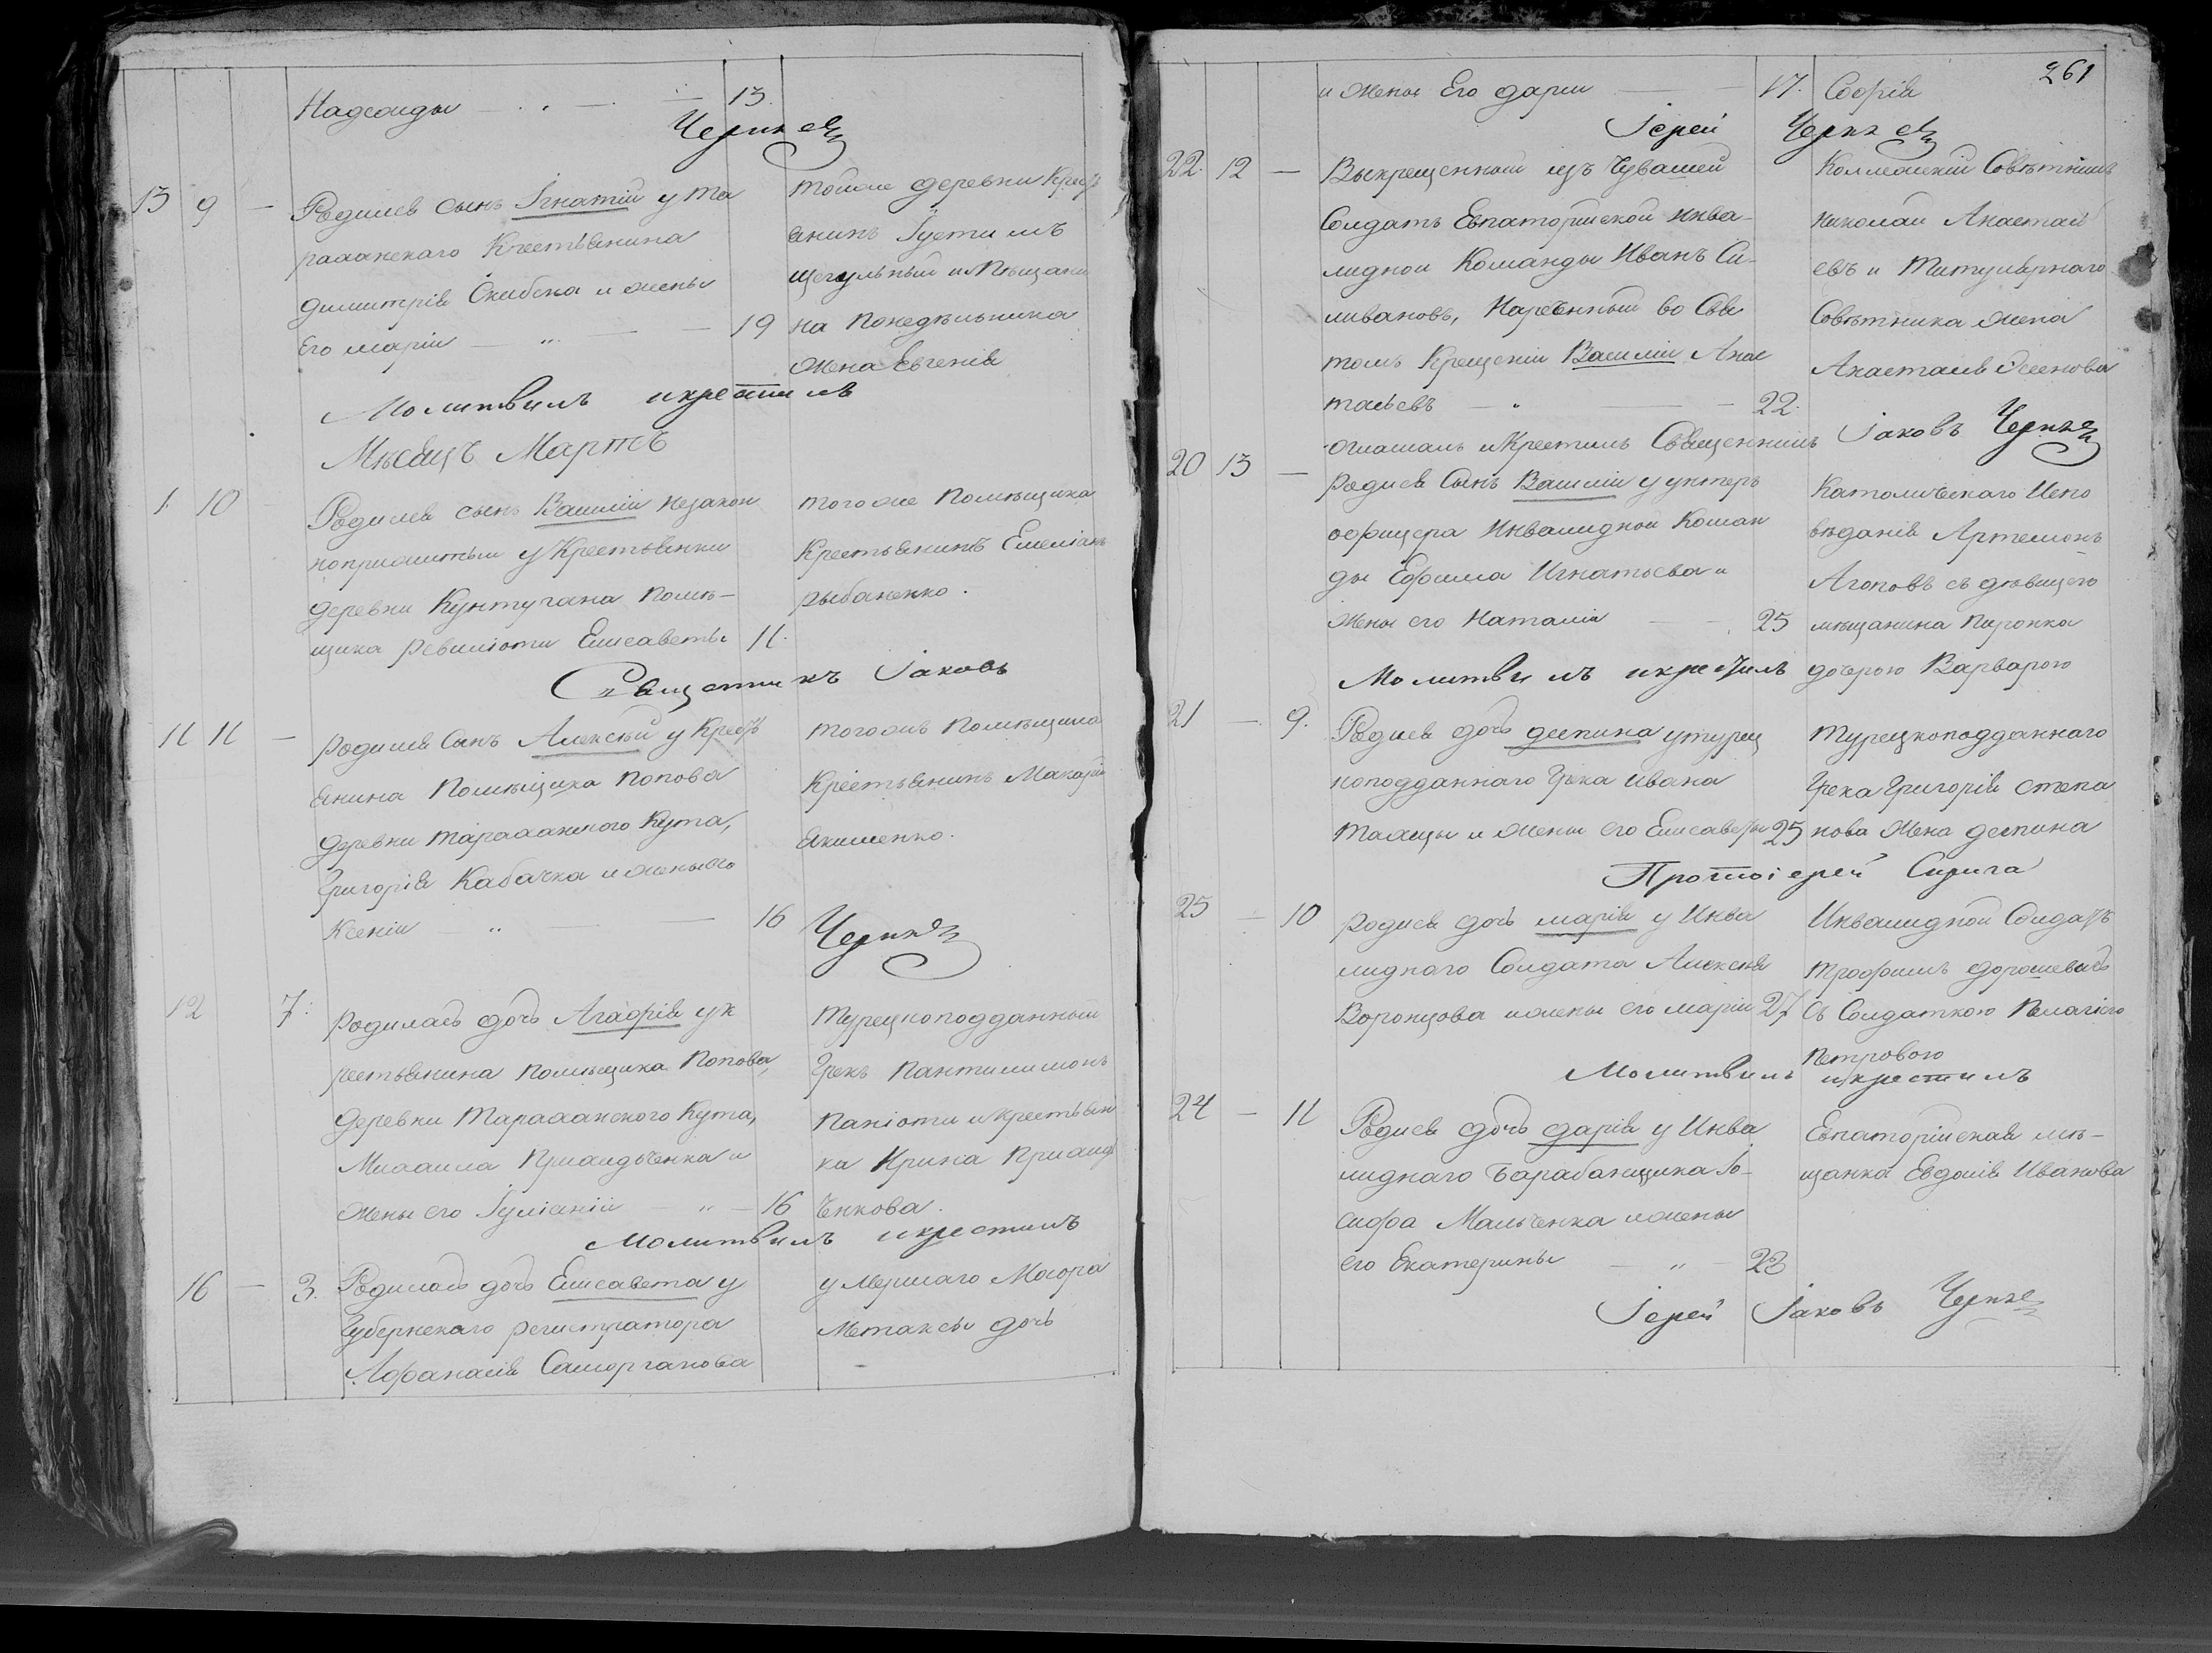 Надежды — 13.
Чернявс
13 9 — Родился сынъ Iгнатiй у Та
раханскаго Крестьянина
Димитрiя Скибска и жены
Его Марiи — 19
тойже деревни Крест
янинъ Iустимъ
Щегульный и Мѣщани
на Понедѣльника
жена Евгенiя
Молитвилъ и крестилъ
Мѣсяцъ Мартъ
1 10 Родился сынъ Василiй незакон
ноприжитый у Крестьянки
деревни Кунтугана Помѣ-
щика Ревилiоти Елисаветы 11.
тогоже Помѣщика
Крестьянинъ Емелiанъ
рыбаненко.
Священникъ Iаковъ
11 11 — Родился Сынъ Алексѣй у Крест
янина Помѣщика Попова
деревни Тараханского Кута,
Григорiя Кабачка и жены его
Ксенiи — 16
тогожъ Помѣщика
Крiестьянинъ Макарiй
Якименко.
12 7. Родилась дочь Агафiя у к
рестьянина помѣщика Попова,
деревни Тараханского Кута,
Михаила Приходченка и
жены его Iулiанiи — 16
Турецкоподданный
Грекъ Пантилимонъ
Панiоти и Крестьян
ка Ирина Приход
ченкова.
Молитвилъ и крестилъ
16 — 3. Родилась дочь Елисавета у
Губернскаго регистратора
Афанасiя Саморганова
умершаго Маiора
Метаксы дочь
261
и жены Его Дарiи — 17. Софiя
Iерей
22. 12 — Выкрещенной изъ Чувашей
Солдатъ Евпаторiйской инва-
лидной Команды Иванъ Си-
ливановъ, Нареченный во Свя
томъ Крещенiи Василiй Анас
тасьевъ — 22.
Коллежскiй Совѣтникъ
Николай Анастась
евъ и Титулярнаго
Совѣтника жена
Анастасiя
оглашалъ и Крестилъ Священникъ Iаковъ
20 13 — Родися Сынъ Василiй у унтеръ
офицера Инвалидной Коман
ды Ефима Игнатьева и
жены его Наталiи — 25
Католическаго Испо
вѣданiя Артемонъ
Агоповъ съ дѣвицею
мѣщанина Пиронка
дочерою Варварою
Молитвилъ и крестилъ
21 — 9. Родися дочь Деспина у турец
коподданнаго Грека Ивана
и жены его Елисаветы 25
Турецкоподданнаго
Грека Григорiя Степа
нова жена Деспина
Протоiерей
25 — 10 Родися дочь Марiя у Инва
лиднаго Солдата Алексѣя
Воронцова и жены его Марiи 27
Инвалидной Солдатъ
Трофимъ
Съ Солдаткою Пелагiею
Петровою
Молитвилъ и крестилъ
24 — 11 Родися дочь Дарiя у Инва
лиднаго Барабанщика Iо-
сифа Мальченка и жены
его Екатерины — 23
Евпаторiйская мѣ-
щанка Евдокiя Иванова
Iерей Iаковъ